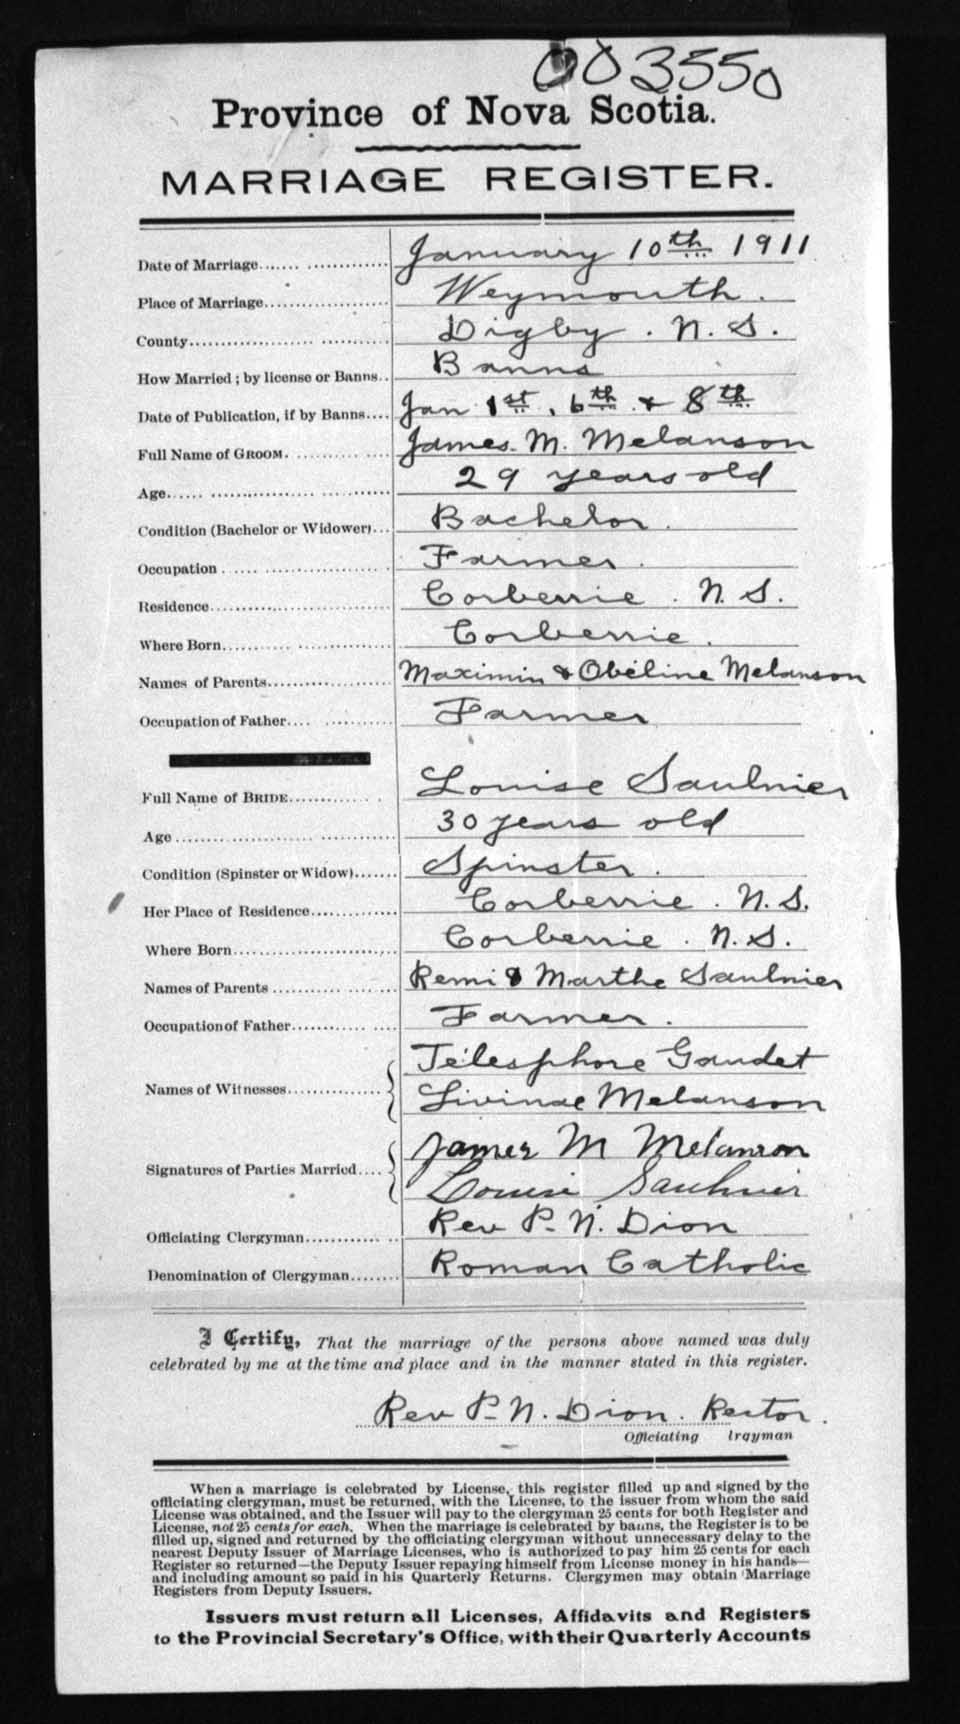 003550
Province of Nova Scotia.
MARRIAGE REGISTER.
Date of Marriage January 10th 1911
Place of Marriage Weymouth.
County Digby. N. S.
How Married; by license or Banns Banns
Date of Publication, if by Banns Jan 1st, 6th & 8th
Full Name of GROOM James. M. Melanson
Age 29 years old
Condition (Bachelor or Widower) Bachelor.
Occupation Farmer.
Residence Corberrie. N. S.
Where Born Corberrie.
Names of Parents Maximin & Obéline Melanson
Occupation of Father Farmer
Full Name of BRIDE Louise Saulnier
Age 30 years old
Condition (Spinster or Widow) Spinster.
Her Place of Residence Corberrie. N. S.
Where Born Corberrie. N. S.
Names of Parents Remi & Marthe Saulnier
Occupation of Father Farmer.
Télesphore Gaudet
Names of Witnesses
Livinae Melanson
James M Melanson
Signatures of Parties Married
Louise Saulnier
Officiating Clergyman Rev P. N. Dion
Denomination of Clergyman Roman Catholic
I Certify, That the marriage of the persons above named was duly
celebrated by me at the time and place and in the manner stated in this register.
Rev P. N. Dion. Rector.
Officiating lrgyman
When a marriage is celebrated by License, this register filled up and signed by the
officiating clergyman, must be returned, with the License, to the issuer from whom the said
License was obtained, and the Issuer will pay to the clergyman 25 cents for both Register and
License, not 25 cents for each. When the marriage is celebrated by banns, the Register is to be
filled up, signed and returned by the officiating clergyman without unnecessary delay to the
nearest Deputy Issuer of Marriage Licenses, who is authorized to pay him 25 cents for each
Register so returned—the Deputy Issuer repaying himself from License money in his hands—
and including amount so paid in his Quarterly Returns. Clergymen may obtain Marriage
Registers from Deputy Issuers.
Issuers must return all Licenses, Affidavits and Registers
to the Provincial Secretary's Office, with their Quarterly Accounts